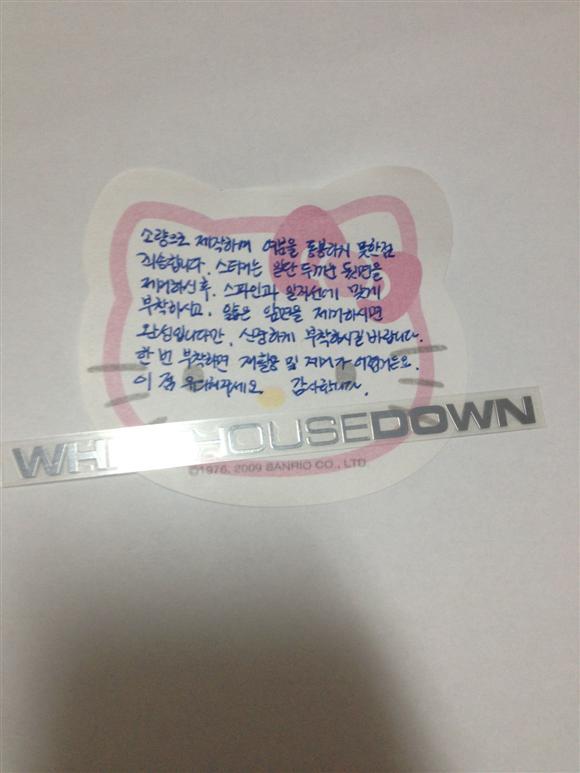 소량으로 제작하며 여분을 동봉하지 못한점
죄송합니다. 스티커는 일단 두꺼운 뒷면을
제거하신후, 스파인과 일직선에 맞게
부착하시고, 얇은 앞면을 제거하시면
완성입니다만, 신중하게 부착하시길 바랍니다.
한번 부착하면 재활용 및 제거가 어렵거든요.
이 점 유의해주세요. 감사합니다.
WHITEHOUSEDOWN
©1976, 2009 SANRIO CO., LTD.